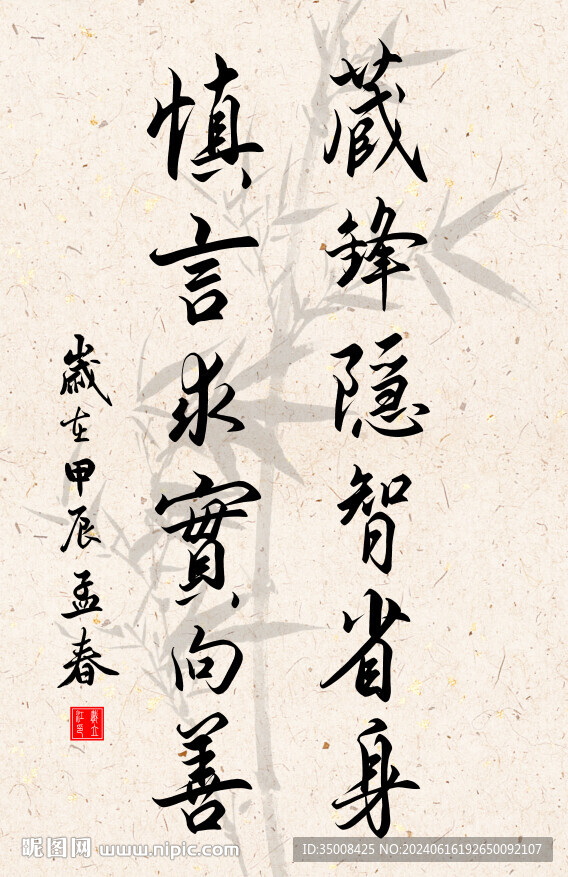 蔵鋒隐智省身
慎言求實向善
歲在甲辰孟春
昵图网 www.nipic.com
ID:35008425 NO:20240616192650092107